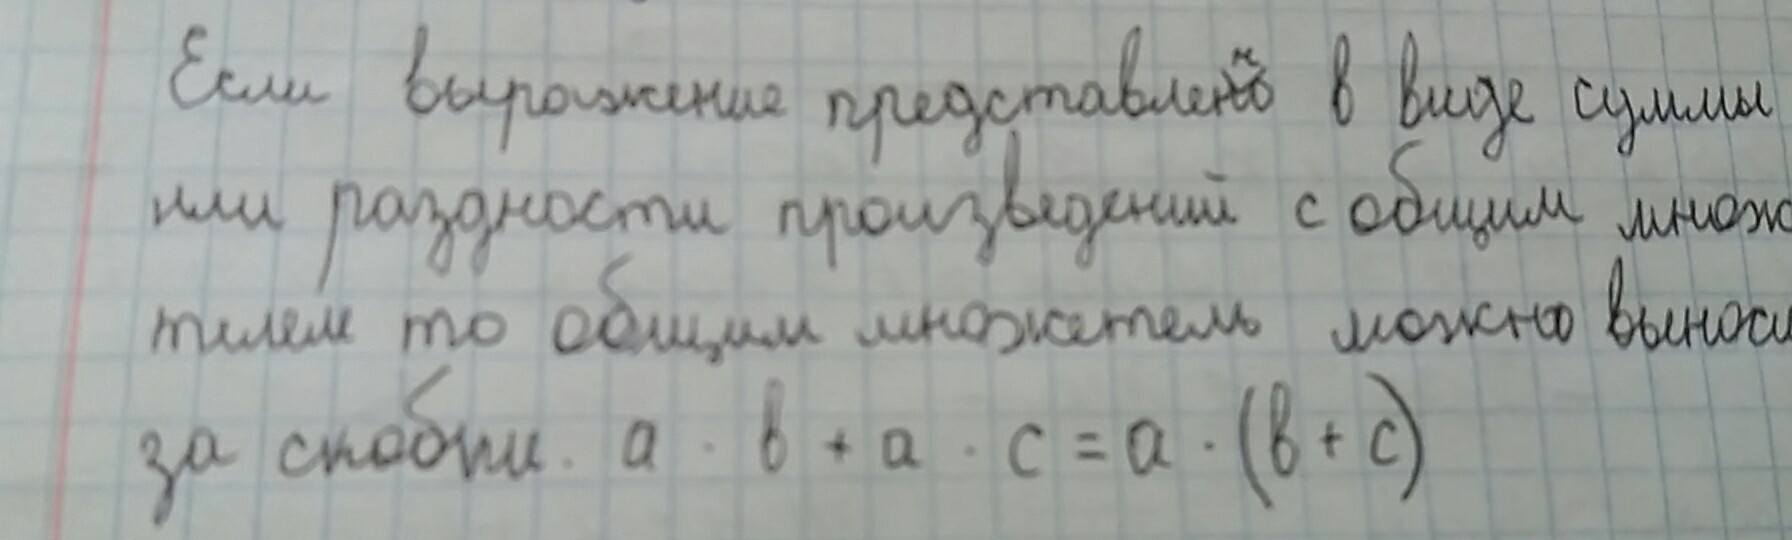 Если выражение представлено в виде суммы
или раздности произведений с общим множ
телем то общим множетель можно выноси
за скобки. a · b + a · c = a · (b + c)